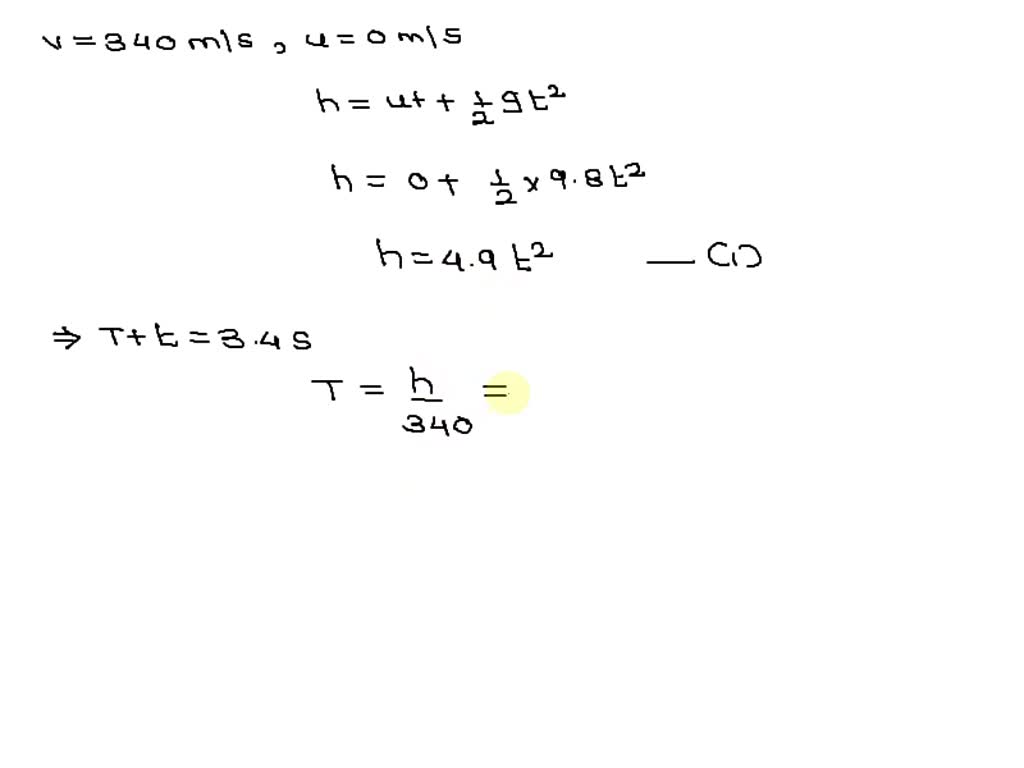 v = 340 m/s , u = 0 m/s
h = ut + 1/2 gt²
h = 0 + 1/2 × 9.8t²
h = 4.9 t² — (1)
⇒ T + t = 3.4 s
T = h/340 =